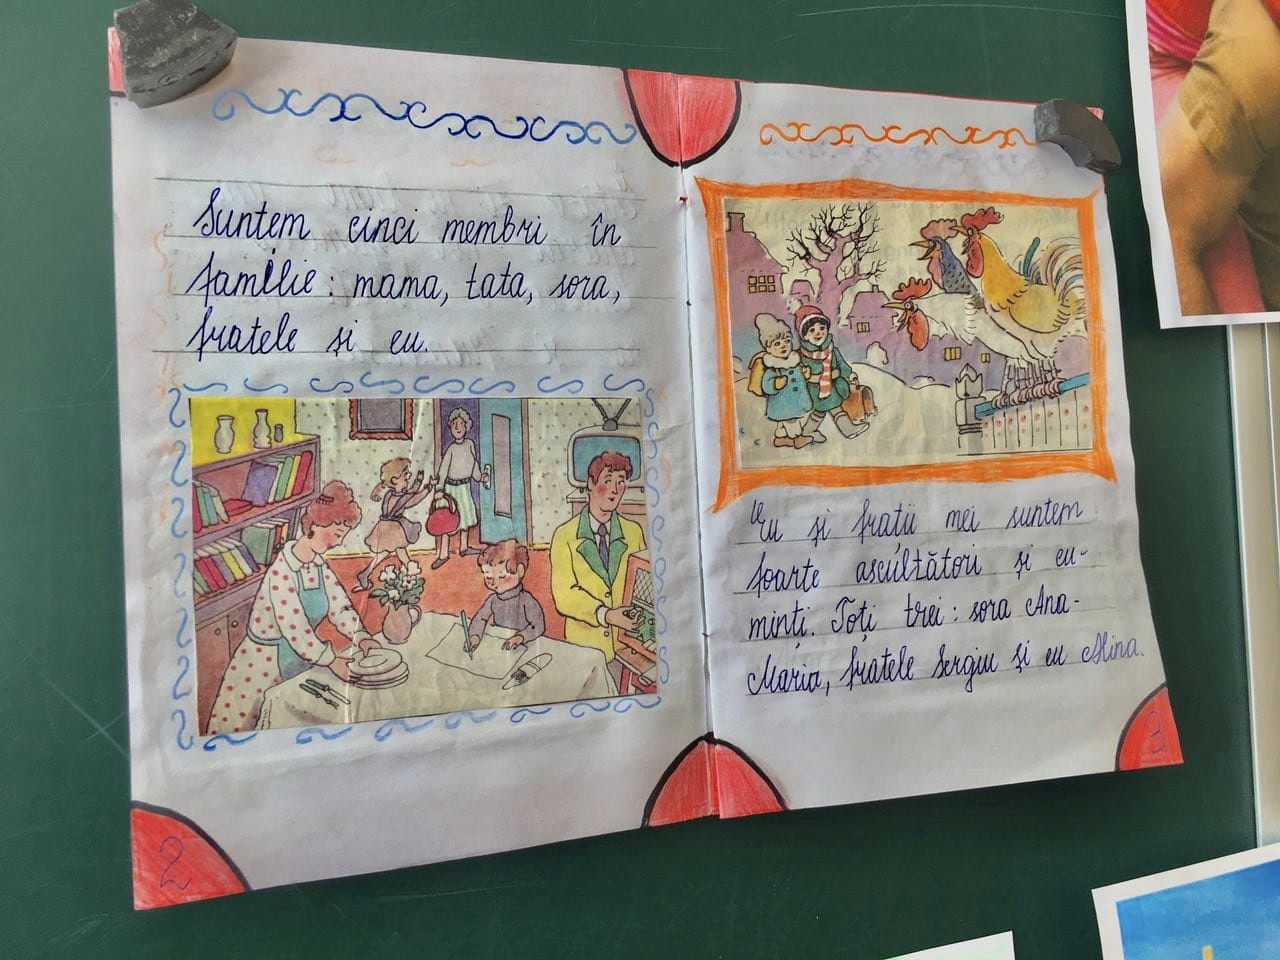 Suntem cinci membri în
familie: mama, tata, sora,
fratele și eu.
2
Eu și frații mei suntem
foarte ascultători și cu-
minți. Toți trei: sora Ana-
Maria, fratele Sergiu și eu Alina.
3